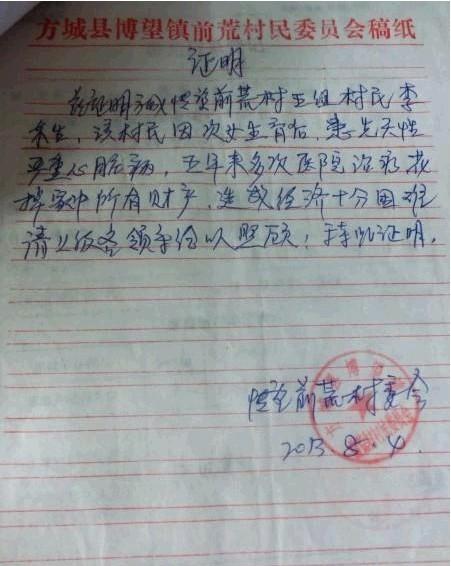 方城县博望镇前荒村民委员会稿纸
证明
兹证明方城博望前荒村五组村民李
来生,该村民因次女生育后,患先天性
严重心脏病,五年来多次医院治疗花
掉家中所有财产,造成经济十分困难
请上级各领导给以照顾,特此证明.
博望前荒村委会
2013 8.4.